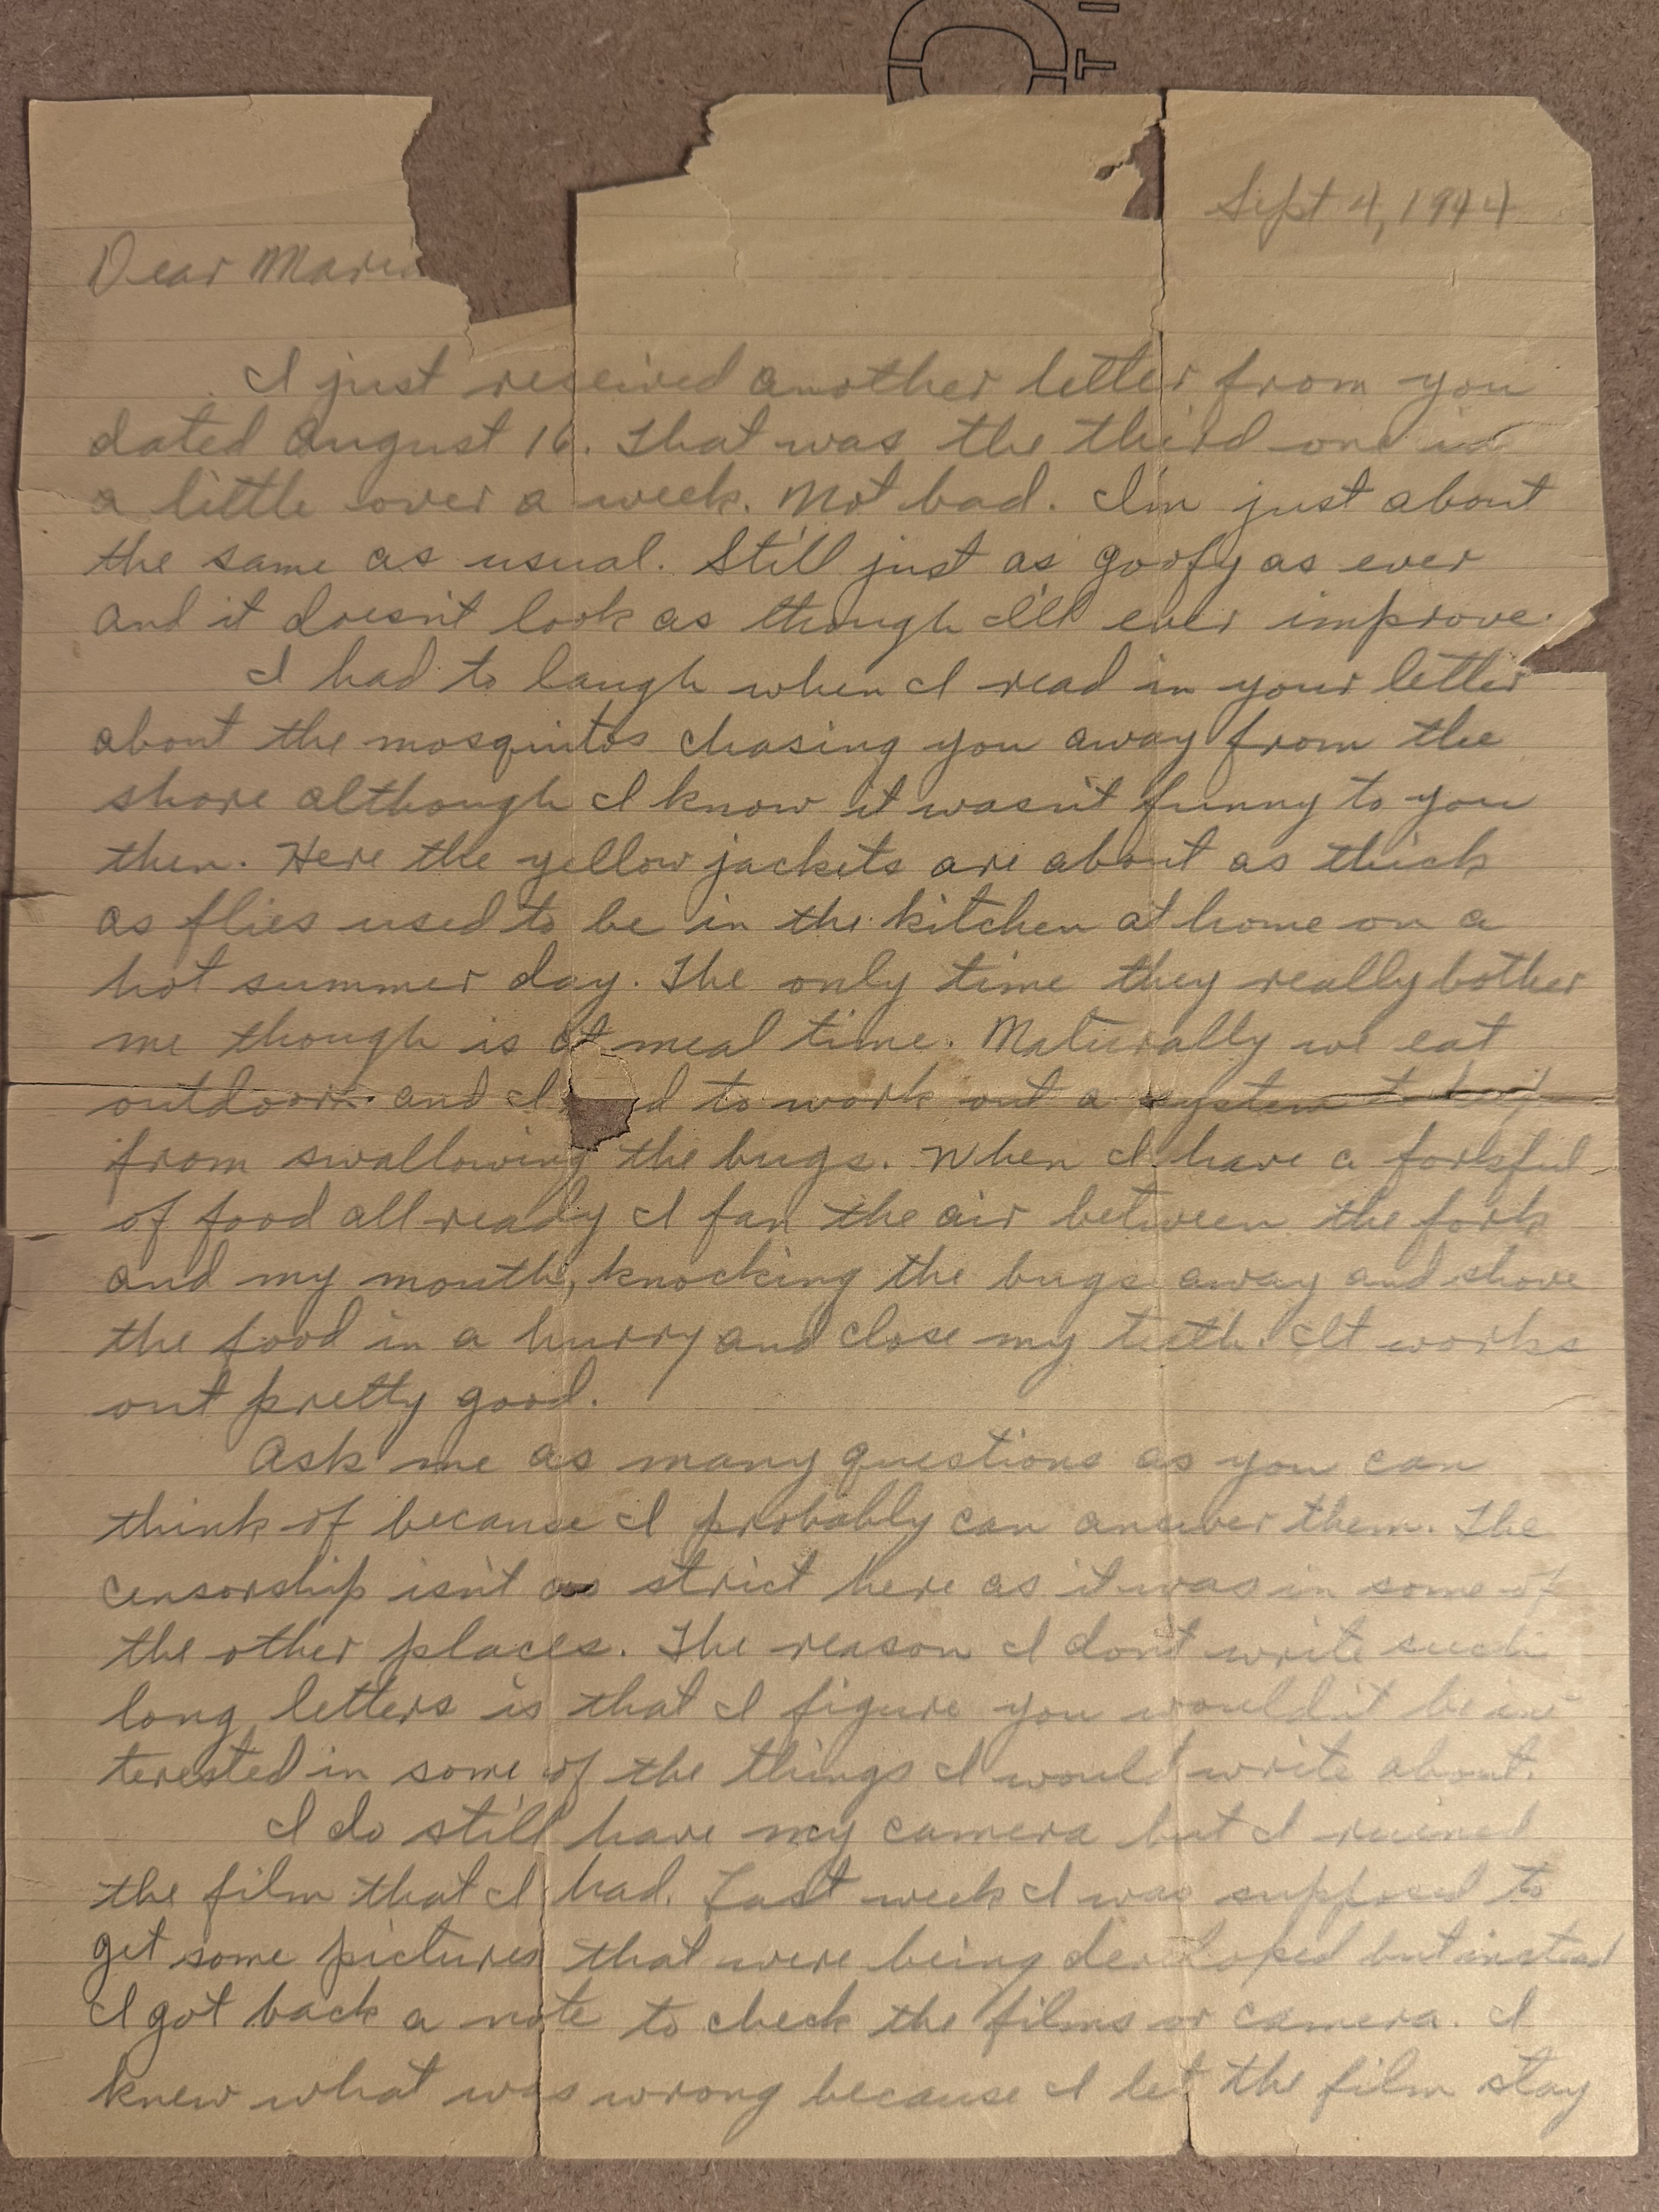 Sept 4, 1944
Dear
I just received another letter from you
dated August 16. That was the third one in
a little over a week. Not bad. I'm just about
the same as usual. Still just as goofy as ever
and it doesn't look as though I'll ever improve.
I had to laugh when I read in your letter
about the mosquitos chasing you away from the
shore although I know it wasn't funny to you
then. Here the yellow jackets are about as thick
as flies used to be in the kitchen at home on a
hot summer day. The only time they really bother
me though is at meal time. Naturally we eat
outdoors and I d to work out a system
from swallowing the bugs. When I have a forkful
of food all ready I fan the air between the fork
and my mouth, knocking the bugs away and shove
the food in a hurry and close my teeth. It works
out pretty good.
Ask me as many questions as you can
think of because I probably can answer them. The
censorship isn't as strict here as it was in some of
the other places. The reason I don't write such
long letters is that I figure you wouldn't be in-
terested in some of the things I would write about.
I do still have my camera but I ruined
the film that I had. Last week I was supposed to
get some pictures that were being developed but instead
I got back a note to check the films or camera. I
knew what was wrong because I let the film stay